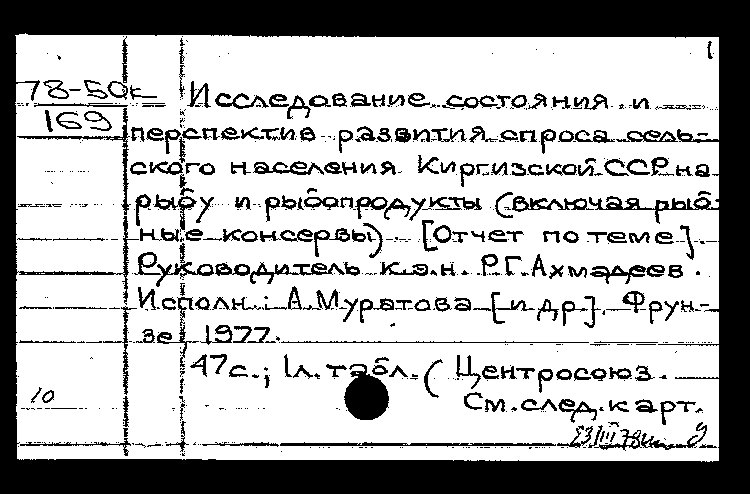 1
78-50к
169
Исследование состояния и
перспектив развития спроса сель-
ского населения Киргизской ССР на
рыбу и рыбопродукты (включая рыб-
ные консервы). [Отчет по теме].
Руководитель к.э.н. Р.Г. Ахмадеев.
Исполн.: А. Муратова [и др]. Фрун-
зе, 1977.
47с.; 1л. табл. ( Центросоюз.
10
См. след. карт.
23/III 78